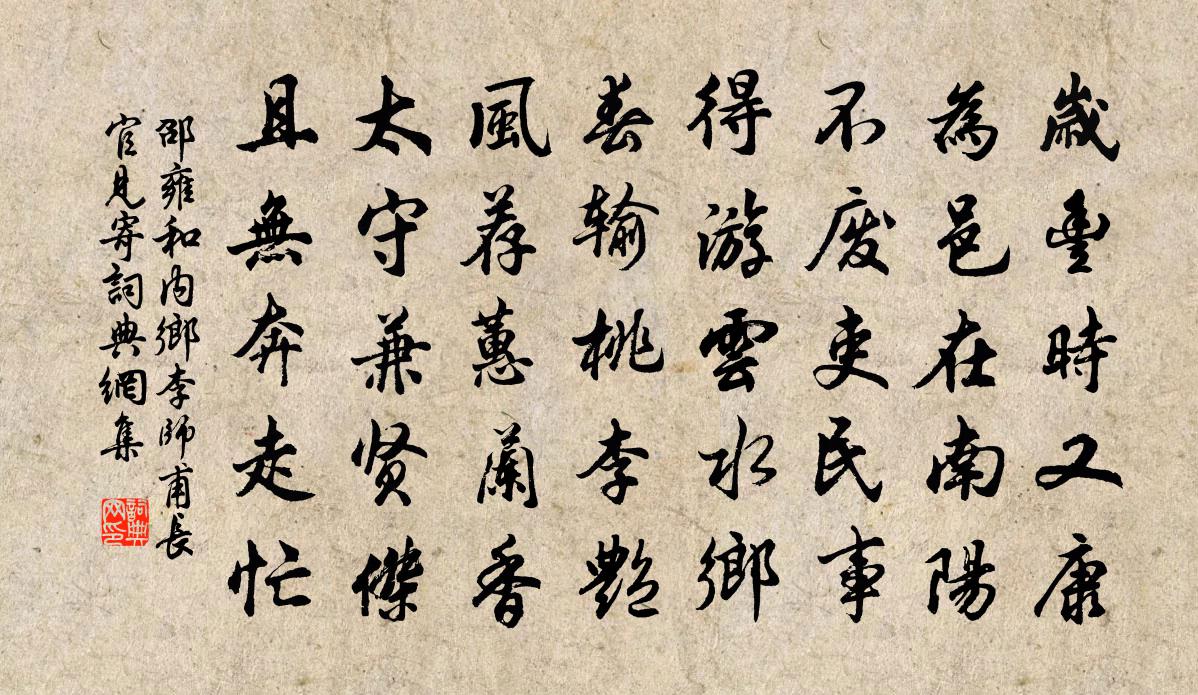 歲豐時又康
為邑在南陽
不廢吏民事
得游雲水鄉
春輸桃李艷
風荐蕙蘭香
太守兼贤傑
且無奔走忙
邵雍和內鄉李師甫長
官見寄詞典網集
詞典
网印